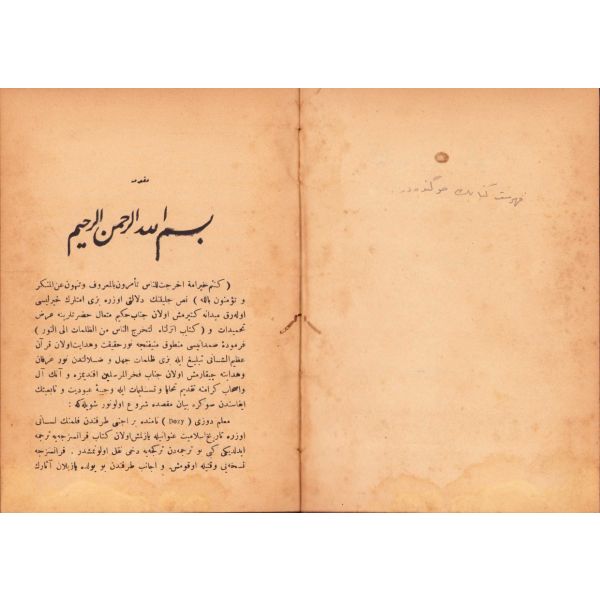 مقدمه
بسم الله الرحمن الرحيم
( كنتم خير امة اخرجت للناس تأمرون بالمعروف وتنهون عن المنكر
و تؤمنون بالله ) نص جليلنك دلالتى اوزره بزى امتلرك خيرليسى
اوله رق ميدانه كتيرمش اولان جناب حكيم متعال حضرتلرينه عرض
تحميدات و ( كتاب انزلناه لتخرج الناس من الظلمات الى النور )
فرمودۀ صمدانيسى منطوق منيفنجه نور حقيقت وهدايت اولان قرآن
عظيم الشانى تبليغ ايله بزى ظلمات جهل و ضلالتدن نور عرفان
وهدايته چيقارمش اولان جناب فخر المرسلين افنديمزه و آنك آل
واصحاب كرامنه تقديم تحايا و تسليمات ايله وجيبۀ عبوديت و تابعيتك
ايفاسندن صوكره بيان مقصده شروع اولنور شويله كه :
معلم دوزى ( Dozy ) نامنده بر اجنبى طرفندن فلمنك لسانى
اوزره تاريخ اسلاميت عنوانيله يازلمش اولان كتاب فرانسزجه يه ترجمه
ايدلديكى كبى بو ترجمه دن تركجه يه دخى نقل اولونمشدر . فرانسزجه
نسخه نى وقتيله اوقومش و اجانب طرفندن بو يولده يازيلان آثارك
فهرست كتابك صوكنده در .